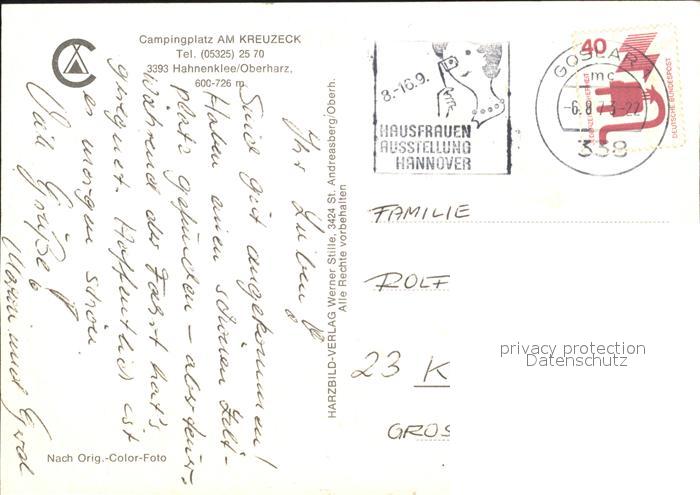 Campingplatz AM KREUZECK
Tel. (05325) 25 70
3393 Hahnenklee/Oberharz,
600-726 m
Ihr Lieben!
Sind gut angekommen!
Haben einen schönen Zelt-
platz gefunden - aber teuer.
Während der Fahrt hat's
geregnet. Hoffentlich ist
es morgen schön.
Viele Grüße
und Gerd
Nach Orig.-Color-Foto
HARZBILD-VERLAG Werner Stille, 3424 St. Andreasberg/Oberh.
Alle Rechte vorbehalten
8.-16.9.
HAUSFRAUEN
AUSSTELLUNG
HANNOVER
GOSLAR
mc
-6.8.73-22
338
40
DEUTSCHE BUNDESPOST
FAMILIE
ROLF
23 K
GROS
privacy protection
Datenschutz